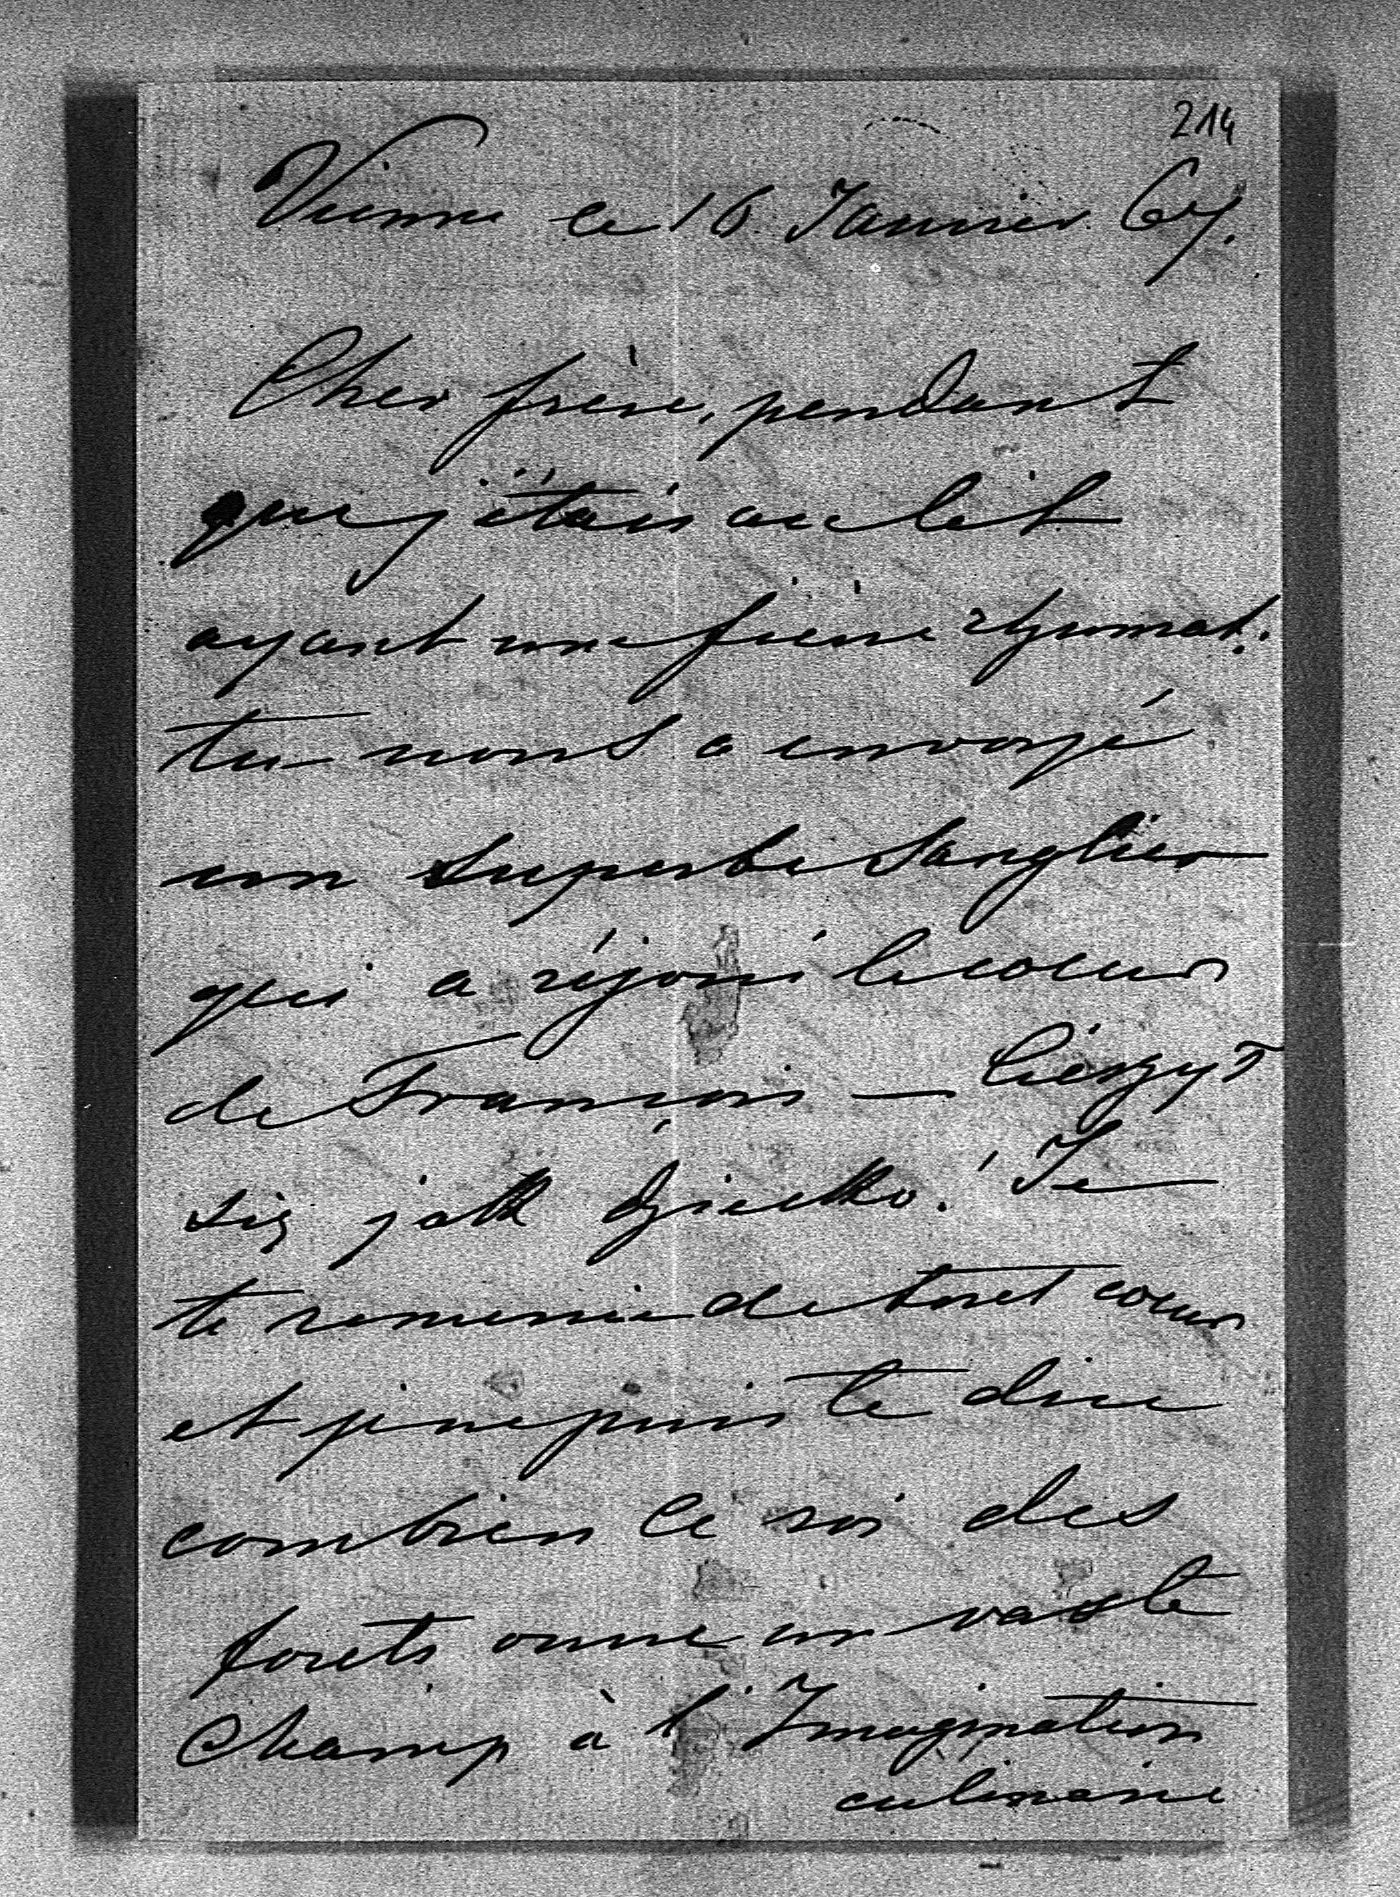 214
Vienne le 16 Janvier 67.
Cher frère, pendant
que j'étais au lit
ayant une fièvre rhumat.
tu nous a envoyé
un superbe Sanglier
qui a réjoui le coeur
de François — Cieszył
się jak dziecko! Je
te remercie de tout coeur
et je ne puis te dire
combien le roi des
forets ouvre un vaste
champ à l'Imagination
culinaire